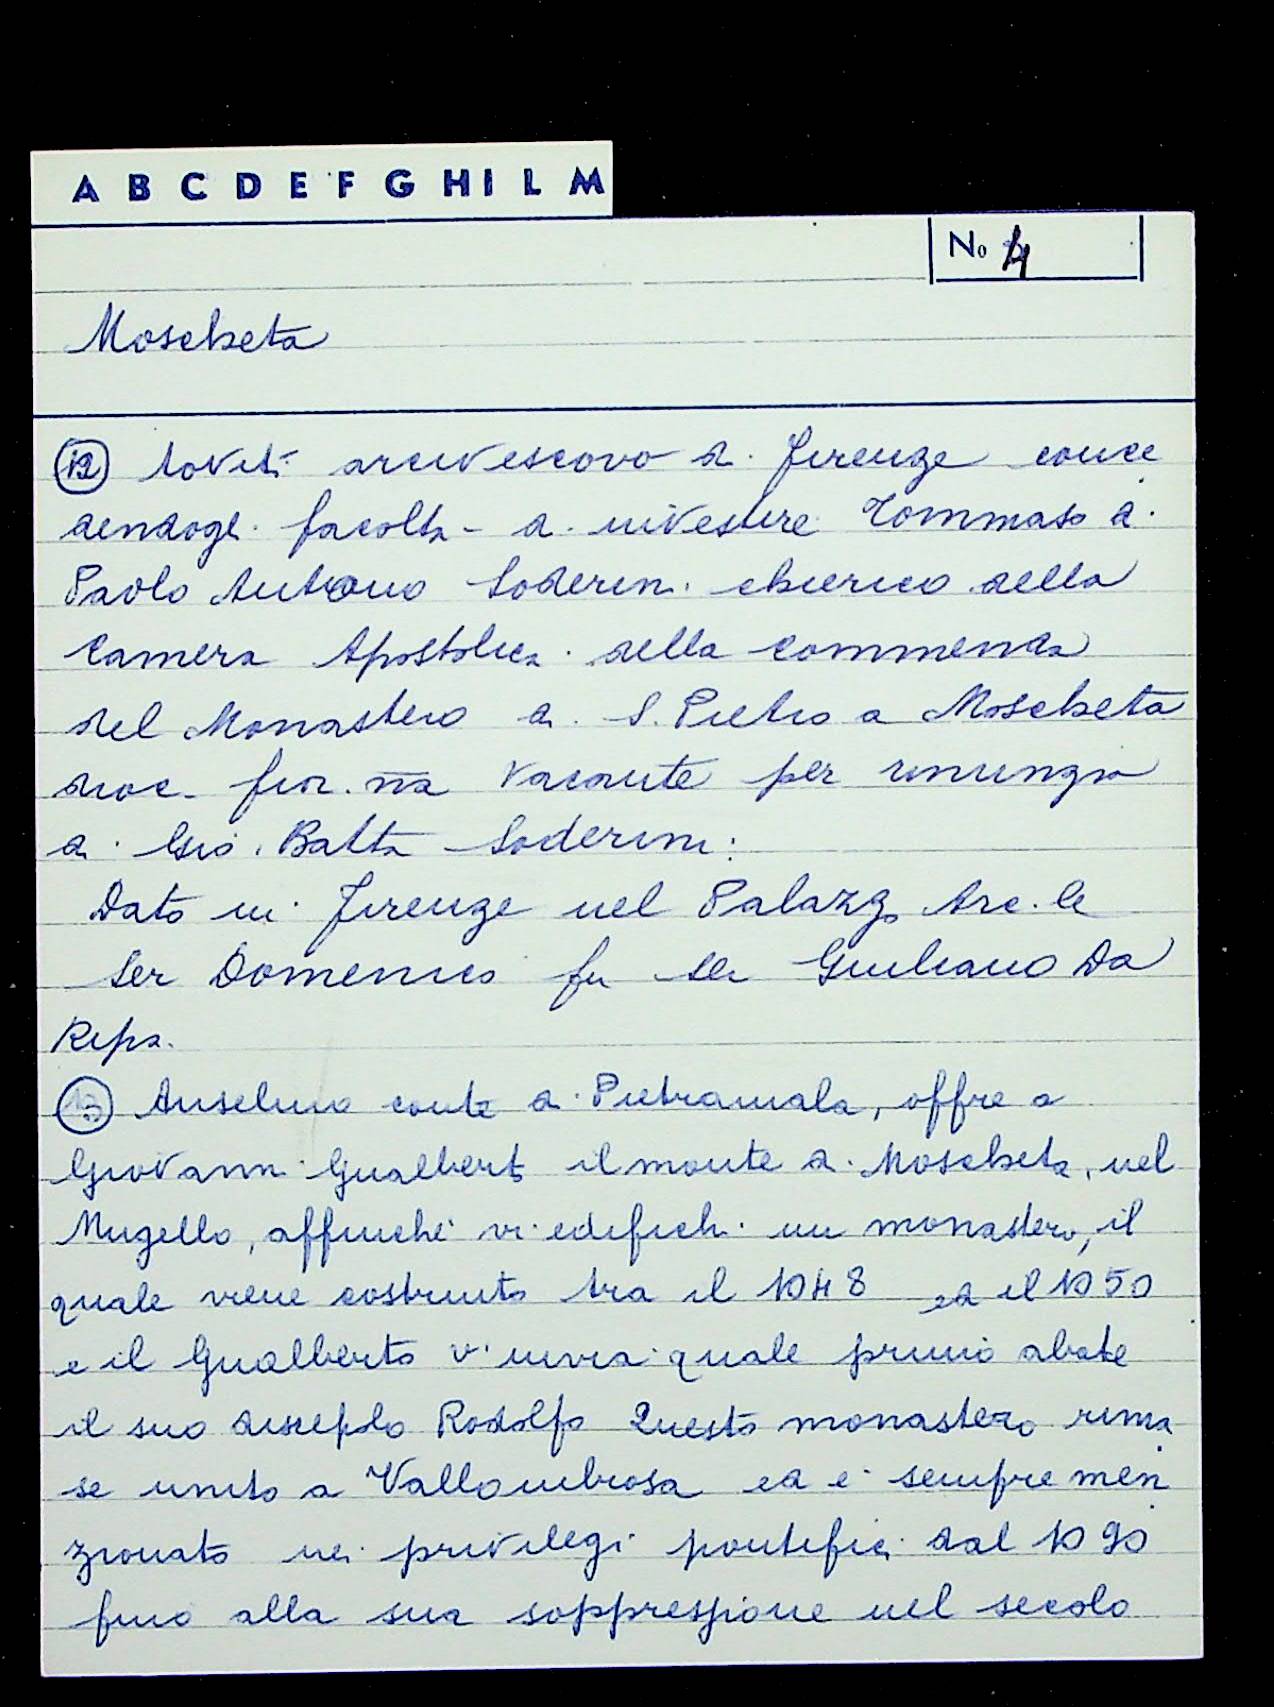 A B C D E F G H I L M
No 4
Moscheta
12 toviti arcivescovo di Firenze conce
dendogli facoltà di investire Tommaso di
Paolo Antonio Soderini chierico della
Camera Apostolica della commenda
del Monastero di S. Pietro a Moscheta
dioc. fior.na vacante per rinunzia
di Gio. Batta Soderini:
Dato in Firenze nel Palazzo Arc.le
Ser Domenico fu Ser Giuliano Da
Ripa.
13 Anselmo conte di Pietramala, offre a
Giovanni Gualberto il monte di Moscheta, nel
Mugello, affinché vi edifichi un monastero, il
quale viene costruito tra il 1048 ed il 1050
e il Gualberto vi invia quale primo abate
il suo discepolo Rodolfo Questo monastero rima
se unito a Vallombrosa ed è sempre men
zionato nei privilegi pontifici dal 1090
fino alla sua soppressione nel secolo